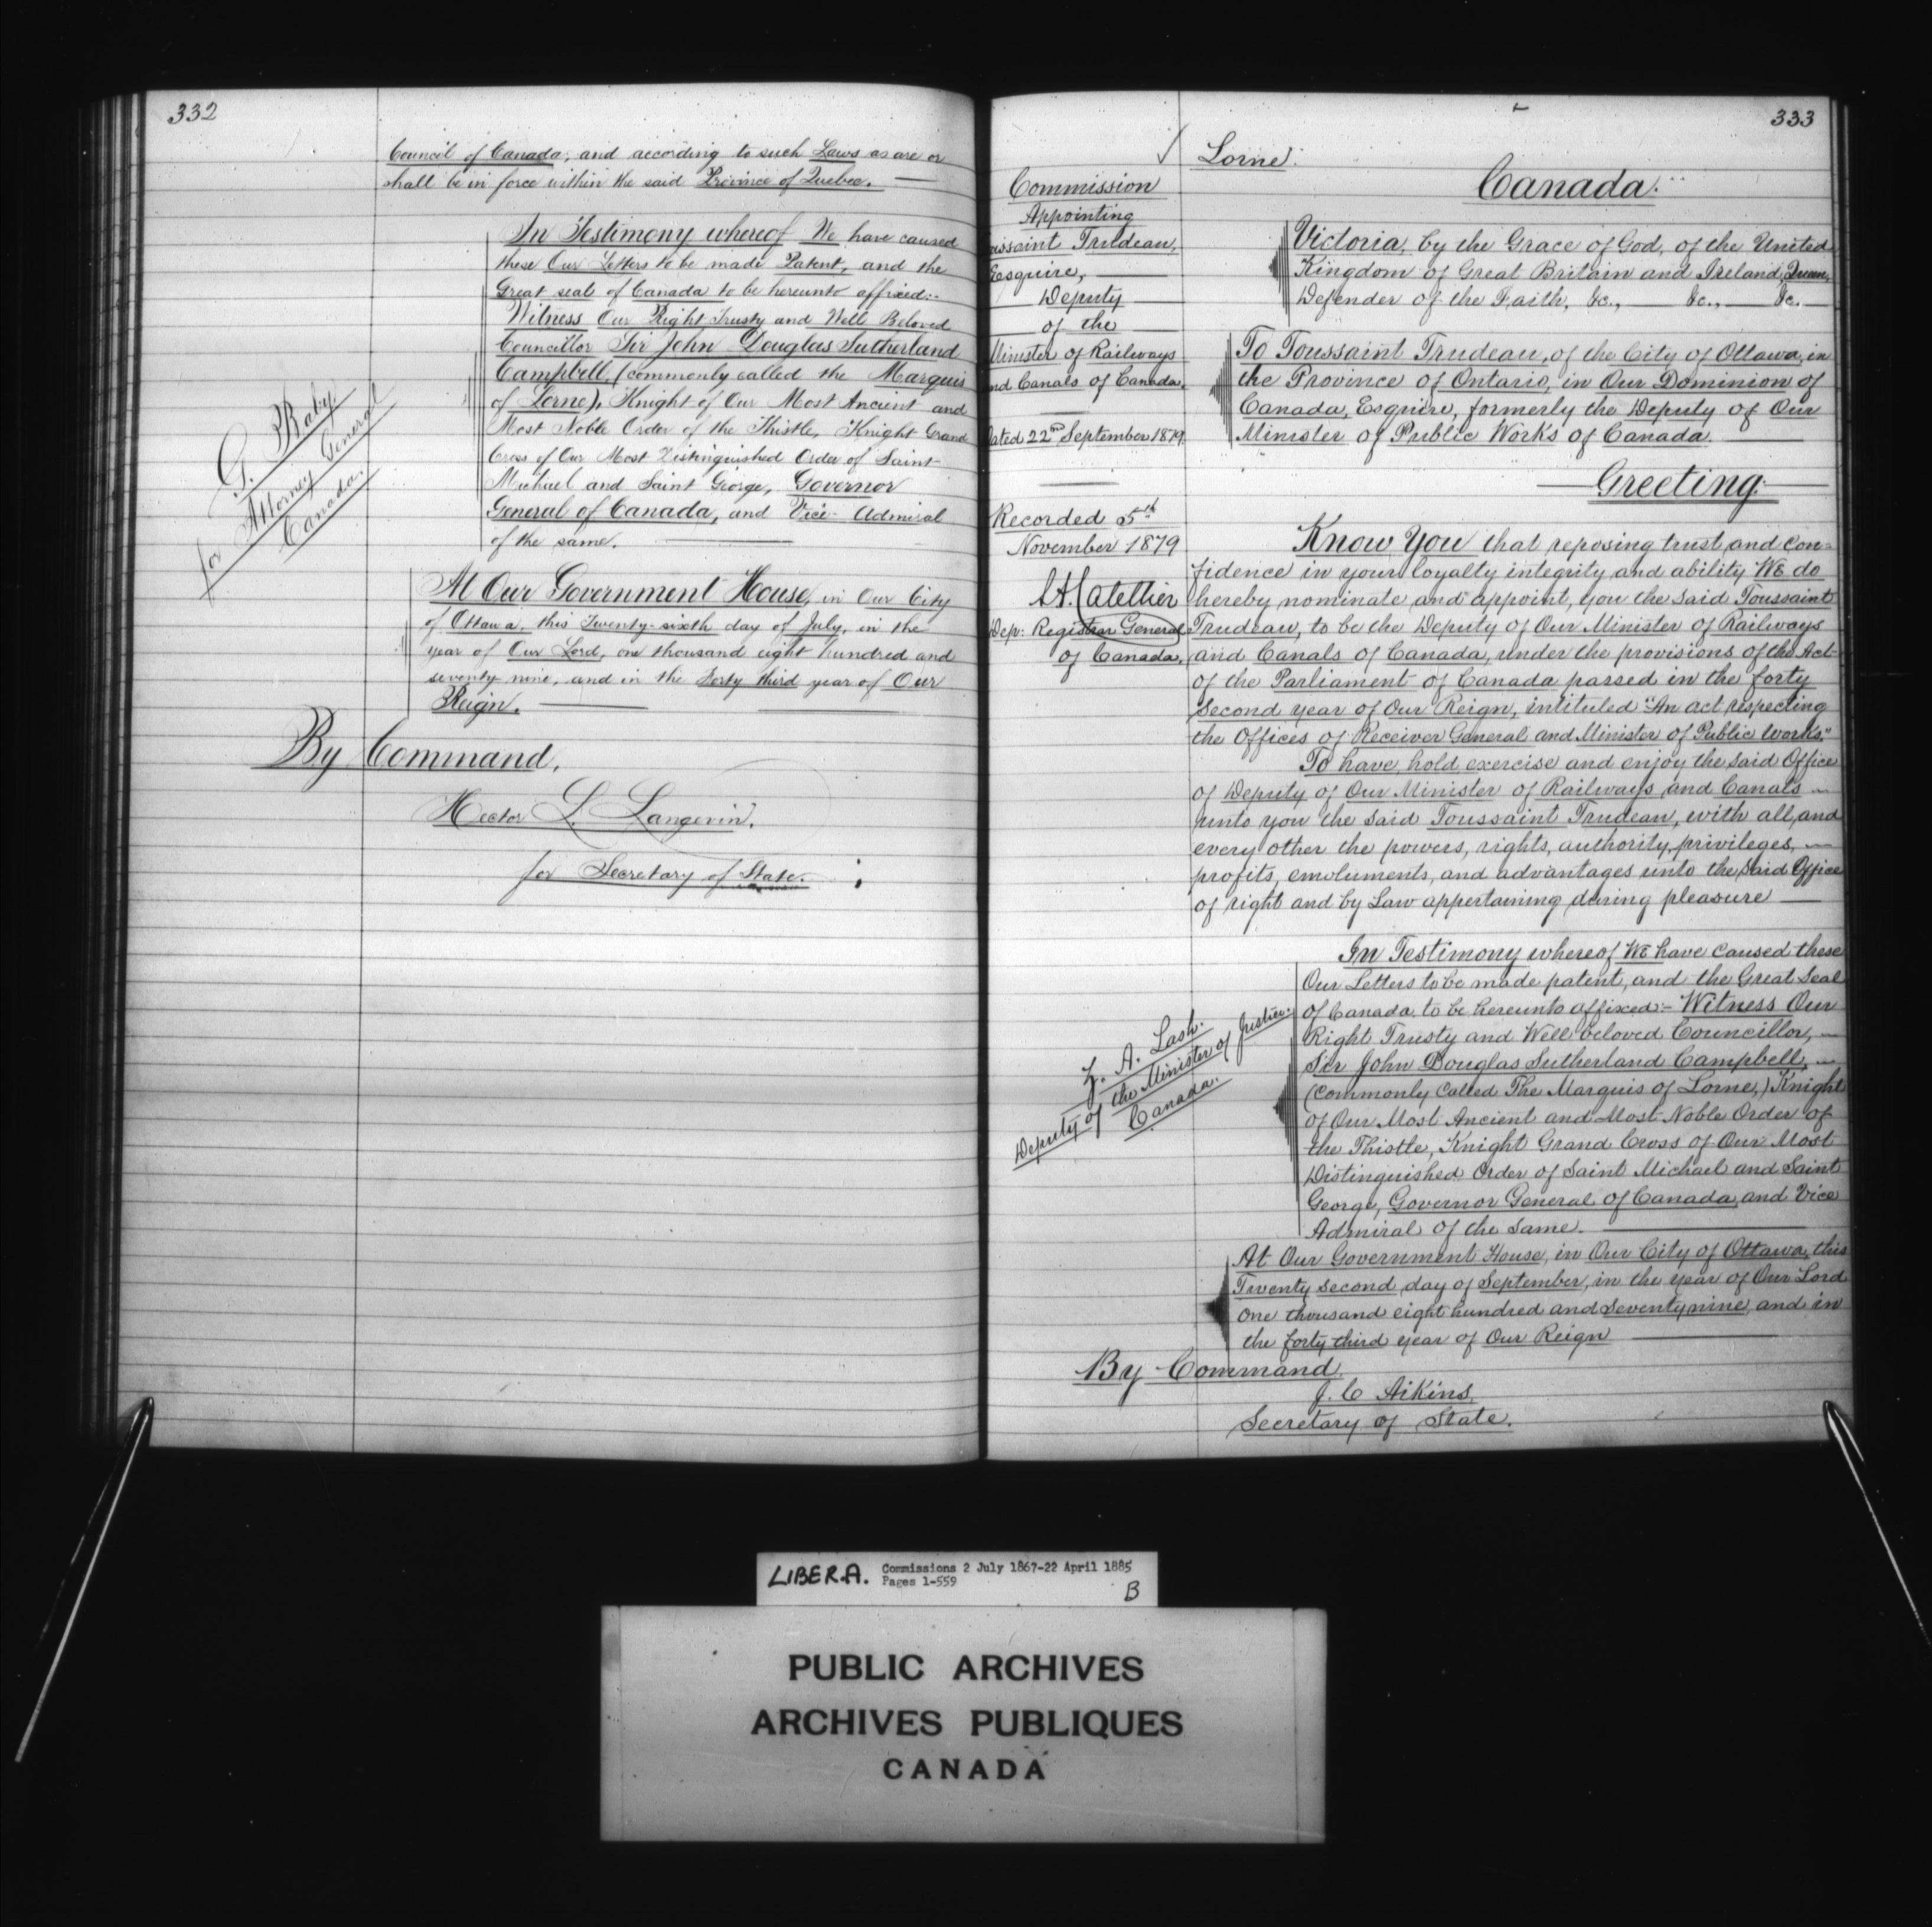 332
Council of Canada, and according to such Laws as are or
shall be in force within the said Province of Quebec.
In Testimony whereof We have caused
these Our Letters to be made Patent, and the
Great seal of Canada to be hereunto affixed:-
Witness Our Right Trusty and Well Beloved
Councillor Sir John Douglas Sutherland
Campbell, (commonly called the Marquis
of Lorne), Knight of Our Most Ancient and
Most Noble Order of the Thistle, Knight Grand
Cross of Our Most Distinguished Order of Saint
Michael and Saint George, Governor
General of Canada, and Vice-Admiral
of the same.
G. Baby
for Attorney General
Canada.
At Our Government House, in Our City
of Ottawa, this Twenty-sixth day of July, in the
year of Our Lord, one thousand eight hundred and
seventy nine, and in the Forty third year of Our
Reign.
By Command,
Hector L. Langevin.
for Secretary of State.
333
Lorne.
Canada.
Commission
Appointing
oissaint Trudeau,
Eesquire,
Deputy
of the
Minister of Railways
nd Canals of Canada.
dated 22nd September 1879.
Recorded 5th
November 1879
Dep: Registrar General
of Canada.
Victoria, by the Grace of God, of the United
Kingdom of Great Britain and Ireland, Queen,
Defender of the Faith, &c., &c., &c.
To Toussaint Trudeau, of the City of Ottawa, in
the Province of Ontario, in Our Dominion of
Canada, Esquire, formerly the Deputy of Our
Minister of Public Works of Canada.
Greeting:
Know You that reposing trust and con=
fidence in your loyalty integrity and ability We do
hereby nominate and appoint, you the said Toussaint
Trudeau, to be the Deputy of Our Minister of Railways
and Canals of Canada, under the provisions of the Act
of the Parliament of Canada passed in the forty
second year of Our Reign, intituled "An act respecting
the Offices of Receiver General and Minister of Public Works."
To have, hold exercise and enjoy the said Office
of Deputy of Our Minister of Railways and Canals
unto you the said Toussaint Trudeau, with all, and
every other the powers, rights, authority, privileges,
profits, emoluments, and advantages unto the said Office
of right and by Law appertaining during pleasure
In Testimony whereof We have caused these
Our Letters to be made patent, and the Great Seal
of Canada to be hereunto affixed:- Witness Our
Right Trusty and Well beloved Councillor,
Sir John Douglas Sutherland Campbell,
(commonly called The Marquis of Lorne,) Knight
of Our Most Ancient and Most Noble Order of
the Thistle, Knight Grand Cross of Our Most
Distinguished Order of Saint Michael and Saint
George, Governor General of Canada, and Vice
Admiral of the same.
Z. A. Lash.
Deputy of the Minister of Justice.
Canada.
At Our Government House, in Our City of Ottawa, this
Twenty second day of September, in the year of Our Lord
one thousand eight hundred and seventy nine, and in
the forty third year of Our Reign
By Command
J. C Aikins,
Secretary of State.
LIBER.A. Commissions 2 July 1867-22 April 1885
Pages 1-559
B
PUBLIC ARCHIVES
ARCHIVES PUBLIQUES
CANADA